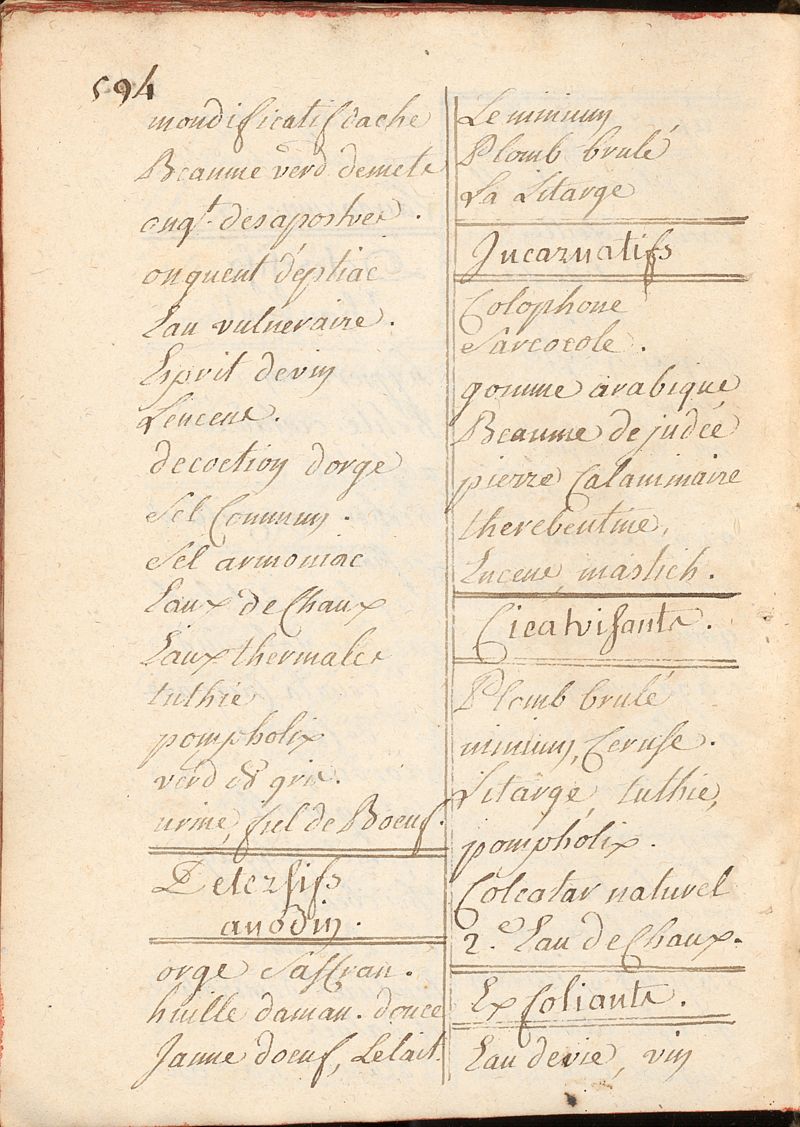 594
mondificatif dache
Beaume verd demets
ongt. desapostres.
onguent déptiac
Eau vulneraire.
Esprit devin
Lencens.
decoction dorge
Sel Commun.
Sel armoniac
Eaux de Chaux
Eaux thermales
tuthie
pompholix
verd de gris.
urine, fiel de Boeuf.
Detersifs
anodin.
orge Saffran.
huille daman. douce
Jaune doeuf, Le lait.
Le minium
Plomb brulé
La Litarge
Incarnatifs
Colophone
Sarcocole.
gomme arabique
Beaume de judée
pierre Calaminaire
therebentine,
Encens, mastich.
Cicatrisants.
Plomb brulé
minium, Ceruse.
Litarge, tuthie,
pompholix.
Colcatar naturel
2.e Eau de Chaux.
Exfoliants.
Eau devie, vin